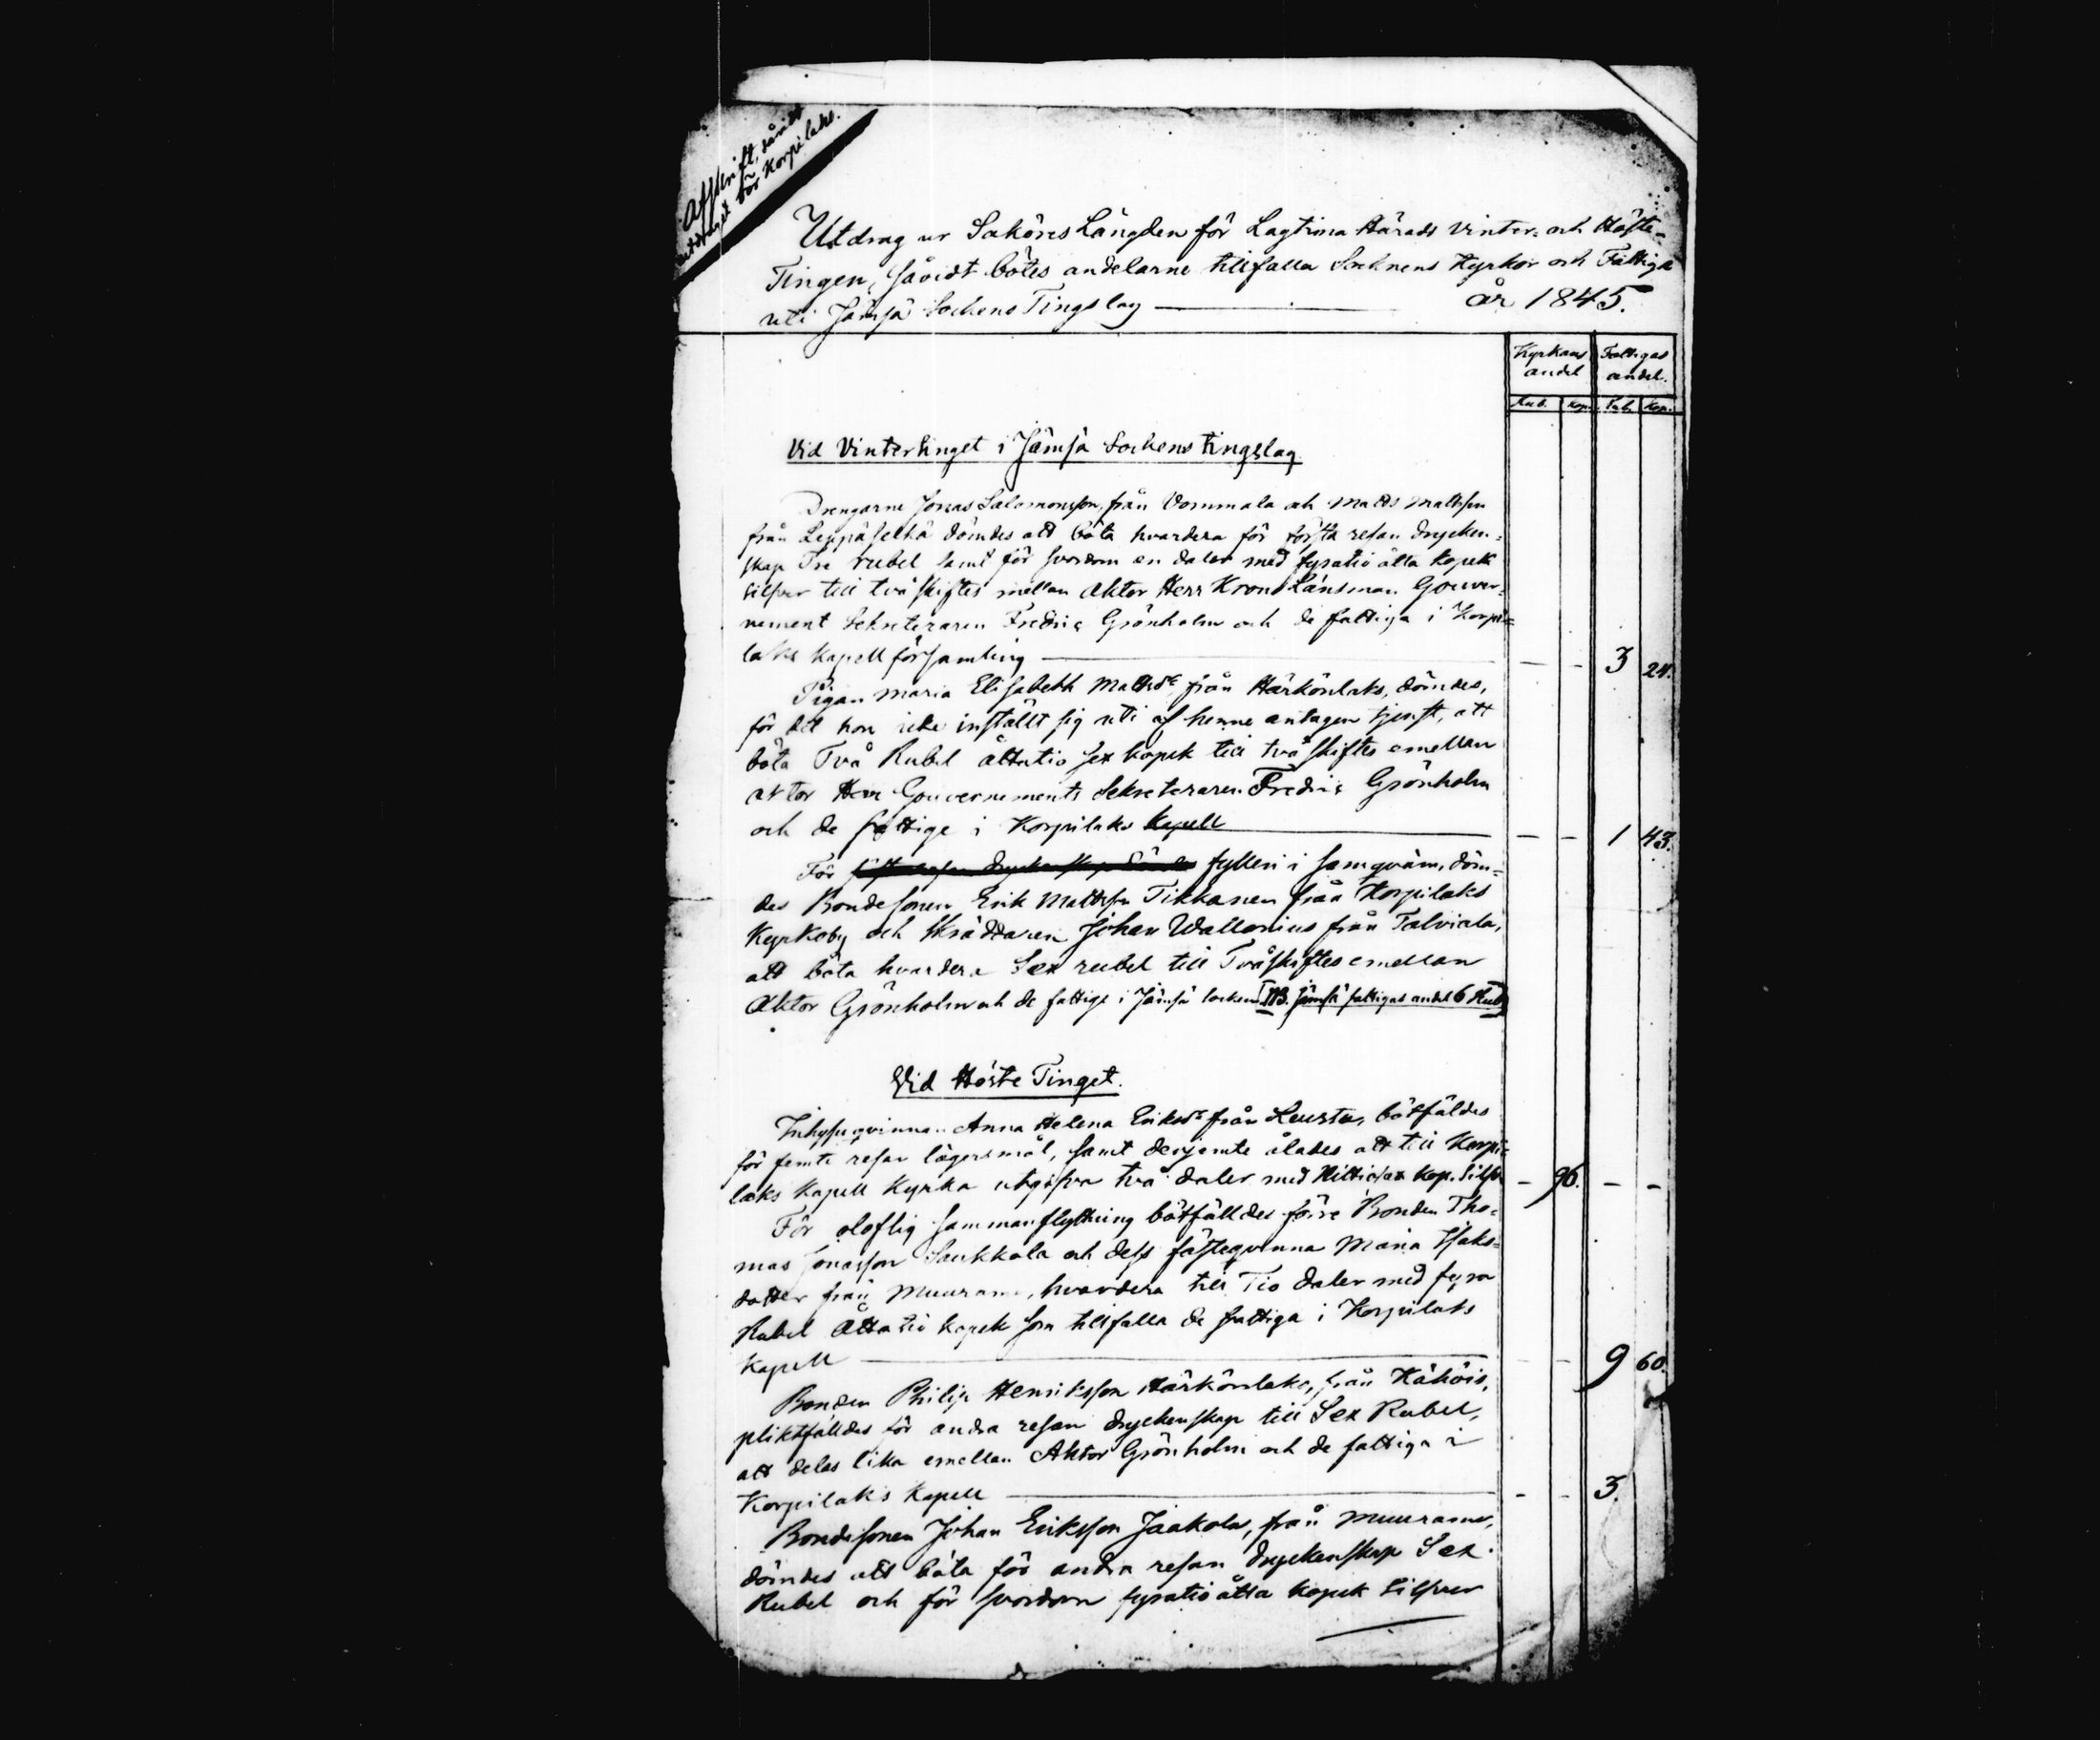 Afskrift, såvidt
utdraget rör Korpilaks.
Utdrag ur Saköres Längden för Lagtima Härads Vinter- och Höste-
Tingen, såvidt bötes andelarne tillfalla Socknens Kyrkor och Fattiga
uti Jämsä Sockens Tingslag — år 1845.
Kyrkans andel Fattigas andel.
Rub. Kop. Rub. Kop.
Vid Vintertinget i Jämsä Sockens tingslag
Drengarne Jonas Salomonsson, från Vommala och Matts Mattsson
från Leppäselkä dömdes att böta hvardera för första resan drycken-
skap Tre rubel samt för svordom en daler med fyratio åtta kopek
silfver till tvåskiftes mellan Aktor Herr Krono Länsman Gouver-
nement Sekreteraren Fredric Grönholm och de fattiga i Korpi-
laks Kapell församling — — — 3 24.
Pigan Maria Elisabeth Mattsdr från Härkönlaks, dömdes,
för det hon icke inställt sig uti af henne antagen tjenst, att
böta Två Rubel åttatio sex kopek till tvåskiftes emellan
aktor Herr Gouvernements Sekreteraren Fredric Grönholm
och de fattige i Korpilaks Kapell — — — 1 43.
För första resan dryckenskap dömdes fylleri i samqväm, döm-
des Bondesonen Erik Mattsson Tikkanen från Korpilaks
Kyrkoby och Skräddaren Johan Wallenius från Talviala,
att böta hvardera Sex rubel till Tvåskiftes emellan
Aktor Grönholm och de fattige i Jämsä socken [NB. Jämsä fattigas andel 6 Rub]
Vid Höste Tinget.
Inhysesqvinnan Anna Helena Eriksdr från Leustu, bötfäldes
för femte resan lägersmål, samt derjemte ålades att till Korpi-
laks Kapell Kyrka utgifva två daler med Nittiosex kop. Silfv — 96. — —
För oloflig sammanflyttning bötfälldes förre Bonden Tho-
mas Jonasson Saukkola och dess fästeqvinna Maria Isaks-
dotter från Muurame, hvardera till Tio daler med fyra
Rubel Åttatio kopek som tillfalla de fattiga i Korpilaks
Kapell — — — 9 60.
Bonden Philip Henriksson Härkönlaks, från Kähöis,
pliktfälldes för andra resan dryckenskap till Sex Rubel,
att delas lika emellan Aktor Grönholm och de fattiga i
Korpilaks Kapell — — — 3.
Bondesonen Johan Eriksson Jaakola, från Muurame,
dömdes att böta för andra resan dryckenskap Sex
Rubel och för svordom fyratio åtta kopek Silfver